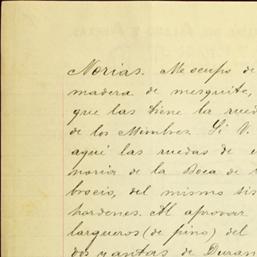 Norias. Me ocupo de
madera de mesquite,
que las tiene la rued
de los Mimbres. Si V.
aquí las ruedas de
noria de la Boca de
brocio, del mismo sis
hordenes. Al aprovar
largueros (de pino) del
dos cuantas de Duran